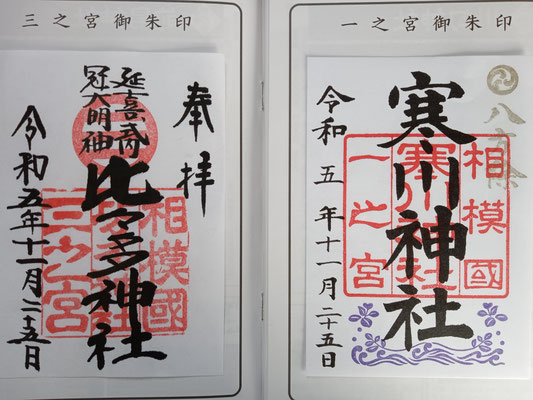 一之宮御朱印
八方除
寒川神社
相模國
一之宮
令和五年十一月二十五日
三之宮御朱印
奉拝
延喜式内
冠大明神
比々多神社
相模國
三之宮
令和五年十一月二五日